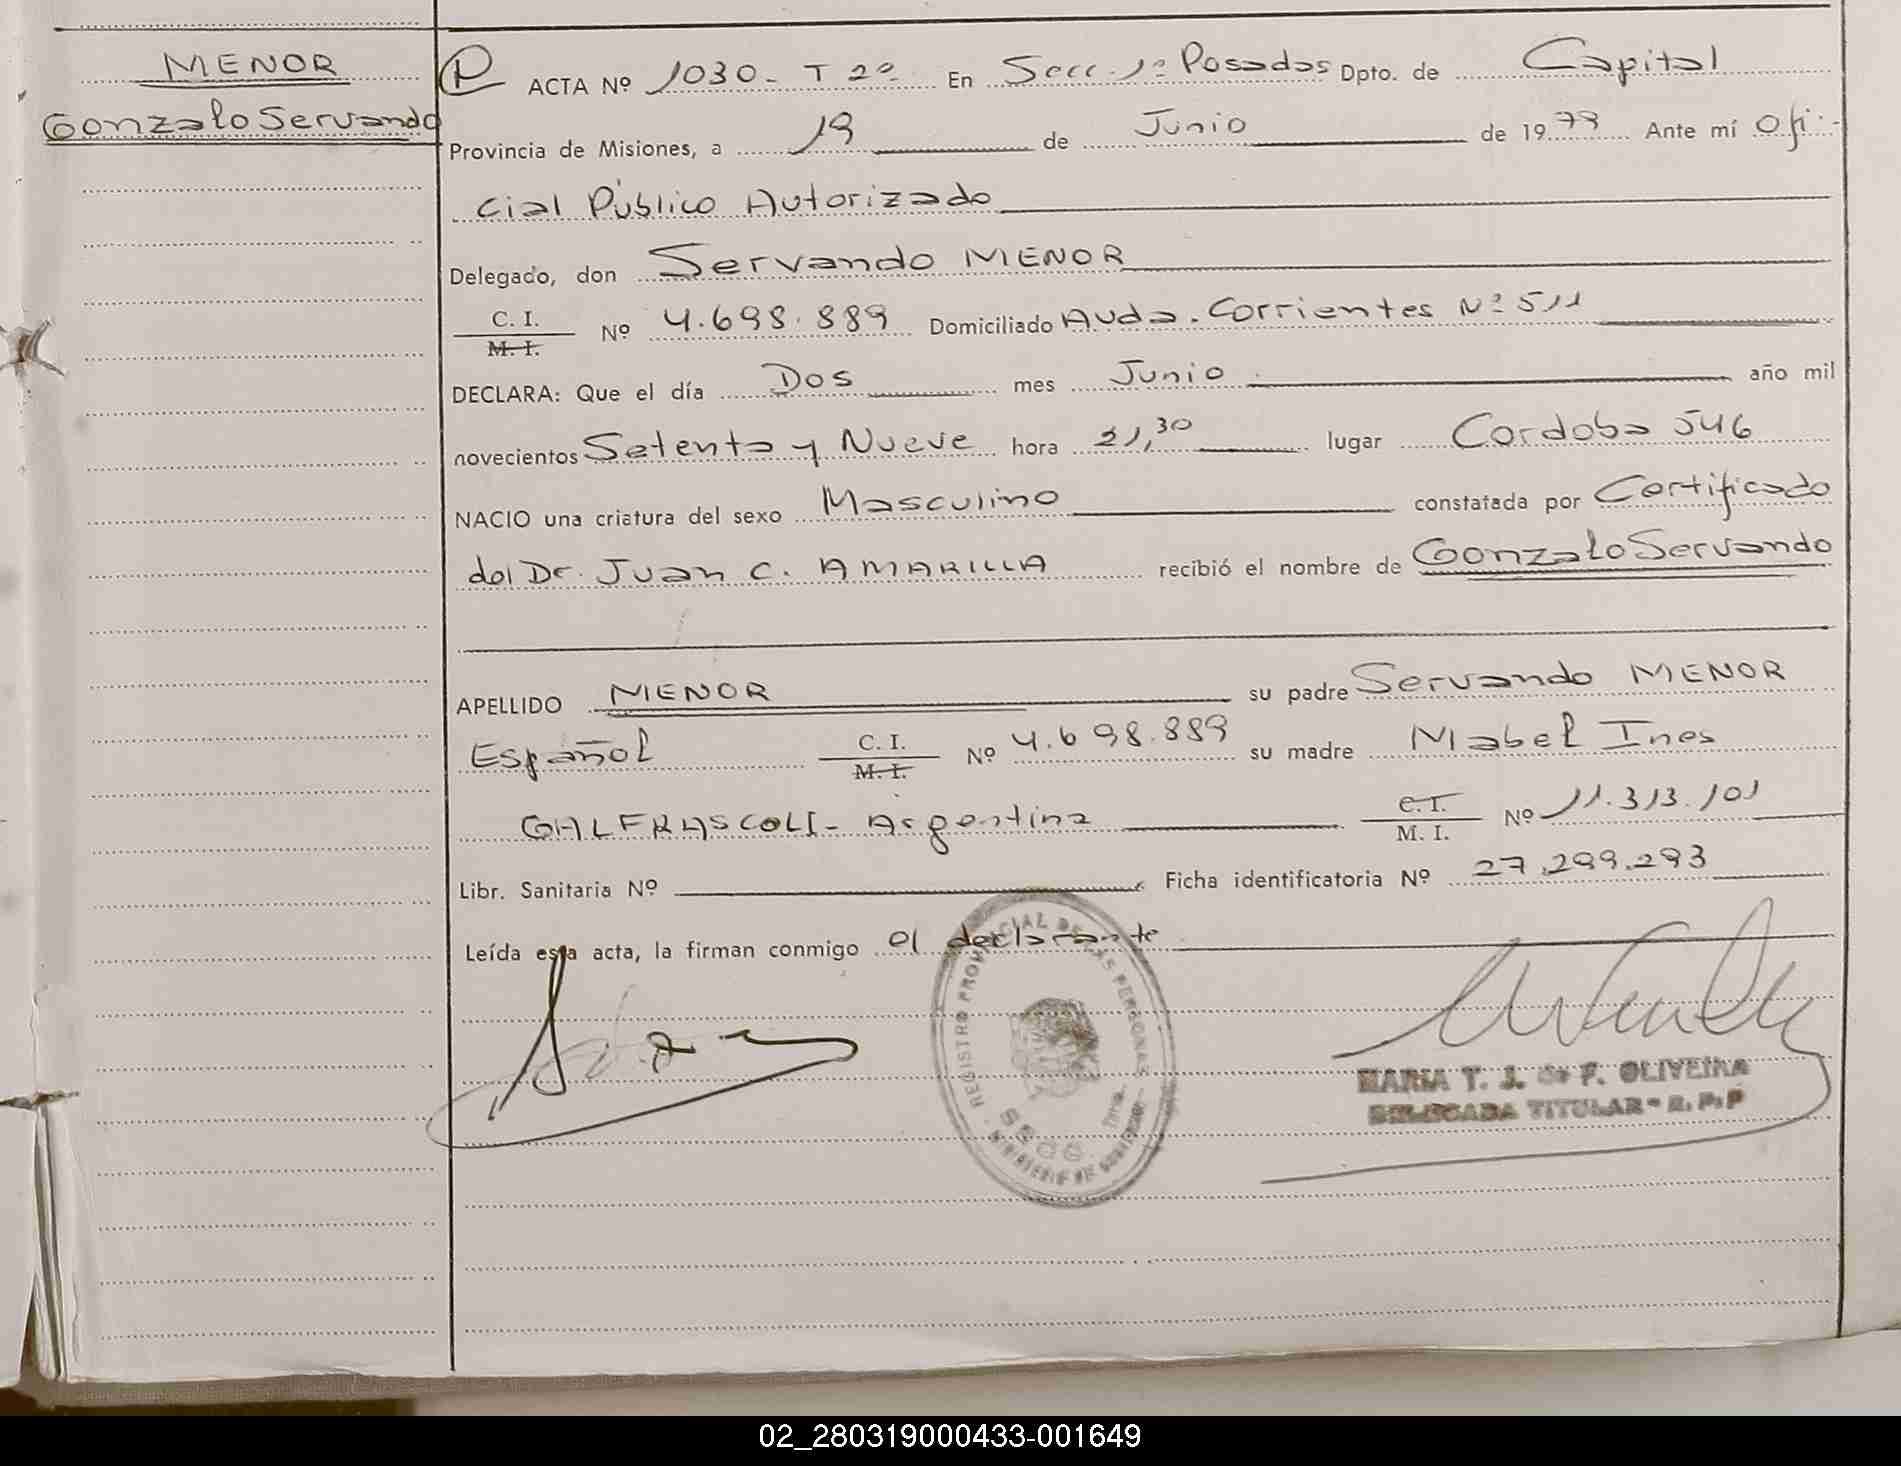 MENOR
Gonzalo Servando
P ACTA Nº 1030 - T 2º En Secc. 1º Posadas Dpto. de Capital
Provincia de Misiones, a 19 de Junio de 1979 Ante mí Ofi-
cial Público Autorizado
Delegado, don Servando MENOR
C. I.
M. I. Nº 4.698.889 Domiciliado Avda. Corrientes Nº 511
DECLARA: Que el día Dos mes Junio año mil
novecientos Setenta y Nueve hora 21,30 lugar Cordoba 546
NACIO una criatura del sexo Masculino constatada por Certificado
del Dr. Juan C. AMARILLA recibió el nombre de Gonzalo Servando
APELLIDO MENOR su padre Servando MENOR
Español C. I.
M. I. Nº 4.698.889 su madre Mabel Ines
GALFRASCOLI - Argentina C. I.
M. I. Nº 11.313.101
Libr. Sanitaria Nº Ficha identificatoria Nº 27.299.293
Leída esta acta, la firman conmigo el declarante
REGISTRO PROVINCIAL DE LAS PERSONAS
MARIA T. J. de F. OLIVEIRA
DELEGADA TITULAR - R. P. P
02_280319000433-001649